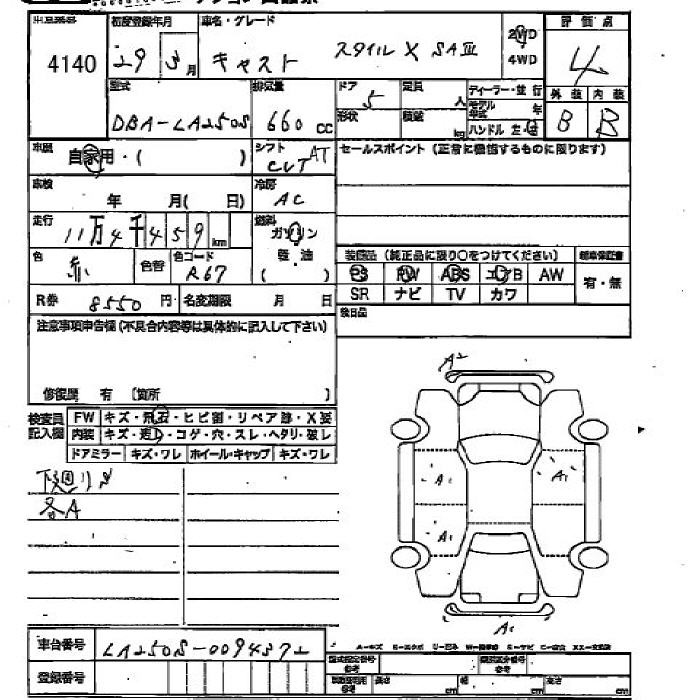 出品番号 初度登録年月 車名・グレード 評価点
4140 29 3月 キャスト スタイル X SAⅢ 2WD 4WD 4
型式 排気量 ドア 5 定員 人 ディーラー・並行 外装 内装
DBA-LA250S 660 cc 形状 積載 kg モデル年式 年 B B
ハンドル 左・右
車歴 自家用・( ) シフト CVT AT セールスポイント (正常に機能するものに限ります)
車検 年 月( 日) 冷房 AC
走行 11万4千459km 燃料 ガソリン 軽油 ( )
色 赤 色替 色コード R67
装備品 (純正品に限り○をつけてください) 新車保証書
PS PW ABS エアB AW 有・無
SR ナビ TV カワ
R券 8550 円 名変期限 月 日
後日品
注意事項申告欄(不具合内容等は具体的に記入して下さい)
修復歴 有 〔箇所 〕
検査員記入欄 FW キズ・飛石・ヒビ割・リペア跡・X要
内装 キズ・汚れ・コゲ・穴・スレ・ヘタリ・破レ
ドアミラー キズ・ワレ ホイール・キャップ キズ・ワレ
下廻りS
各A
A2
A1 A1
A1
A1
A-キズ
車台番号 LA250S-0094372
登録番号
型式指定番号 参考 類別区分番号 参考
長さ cm 幅 cm 高さ cm